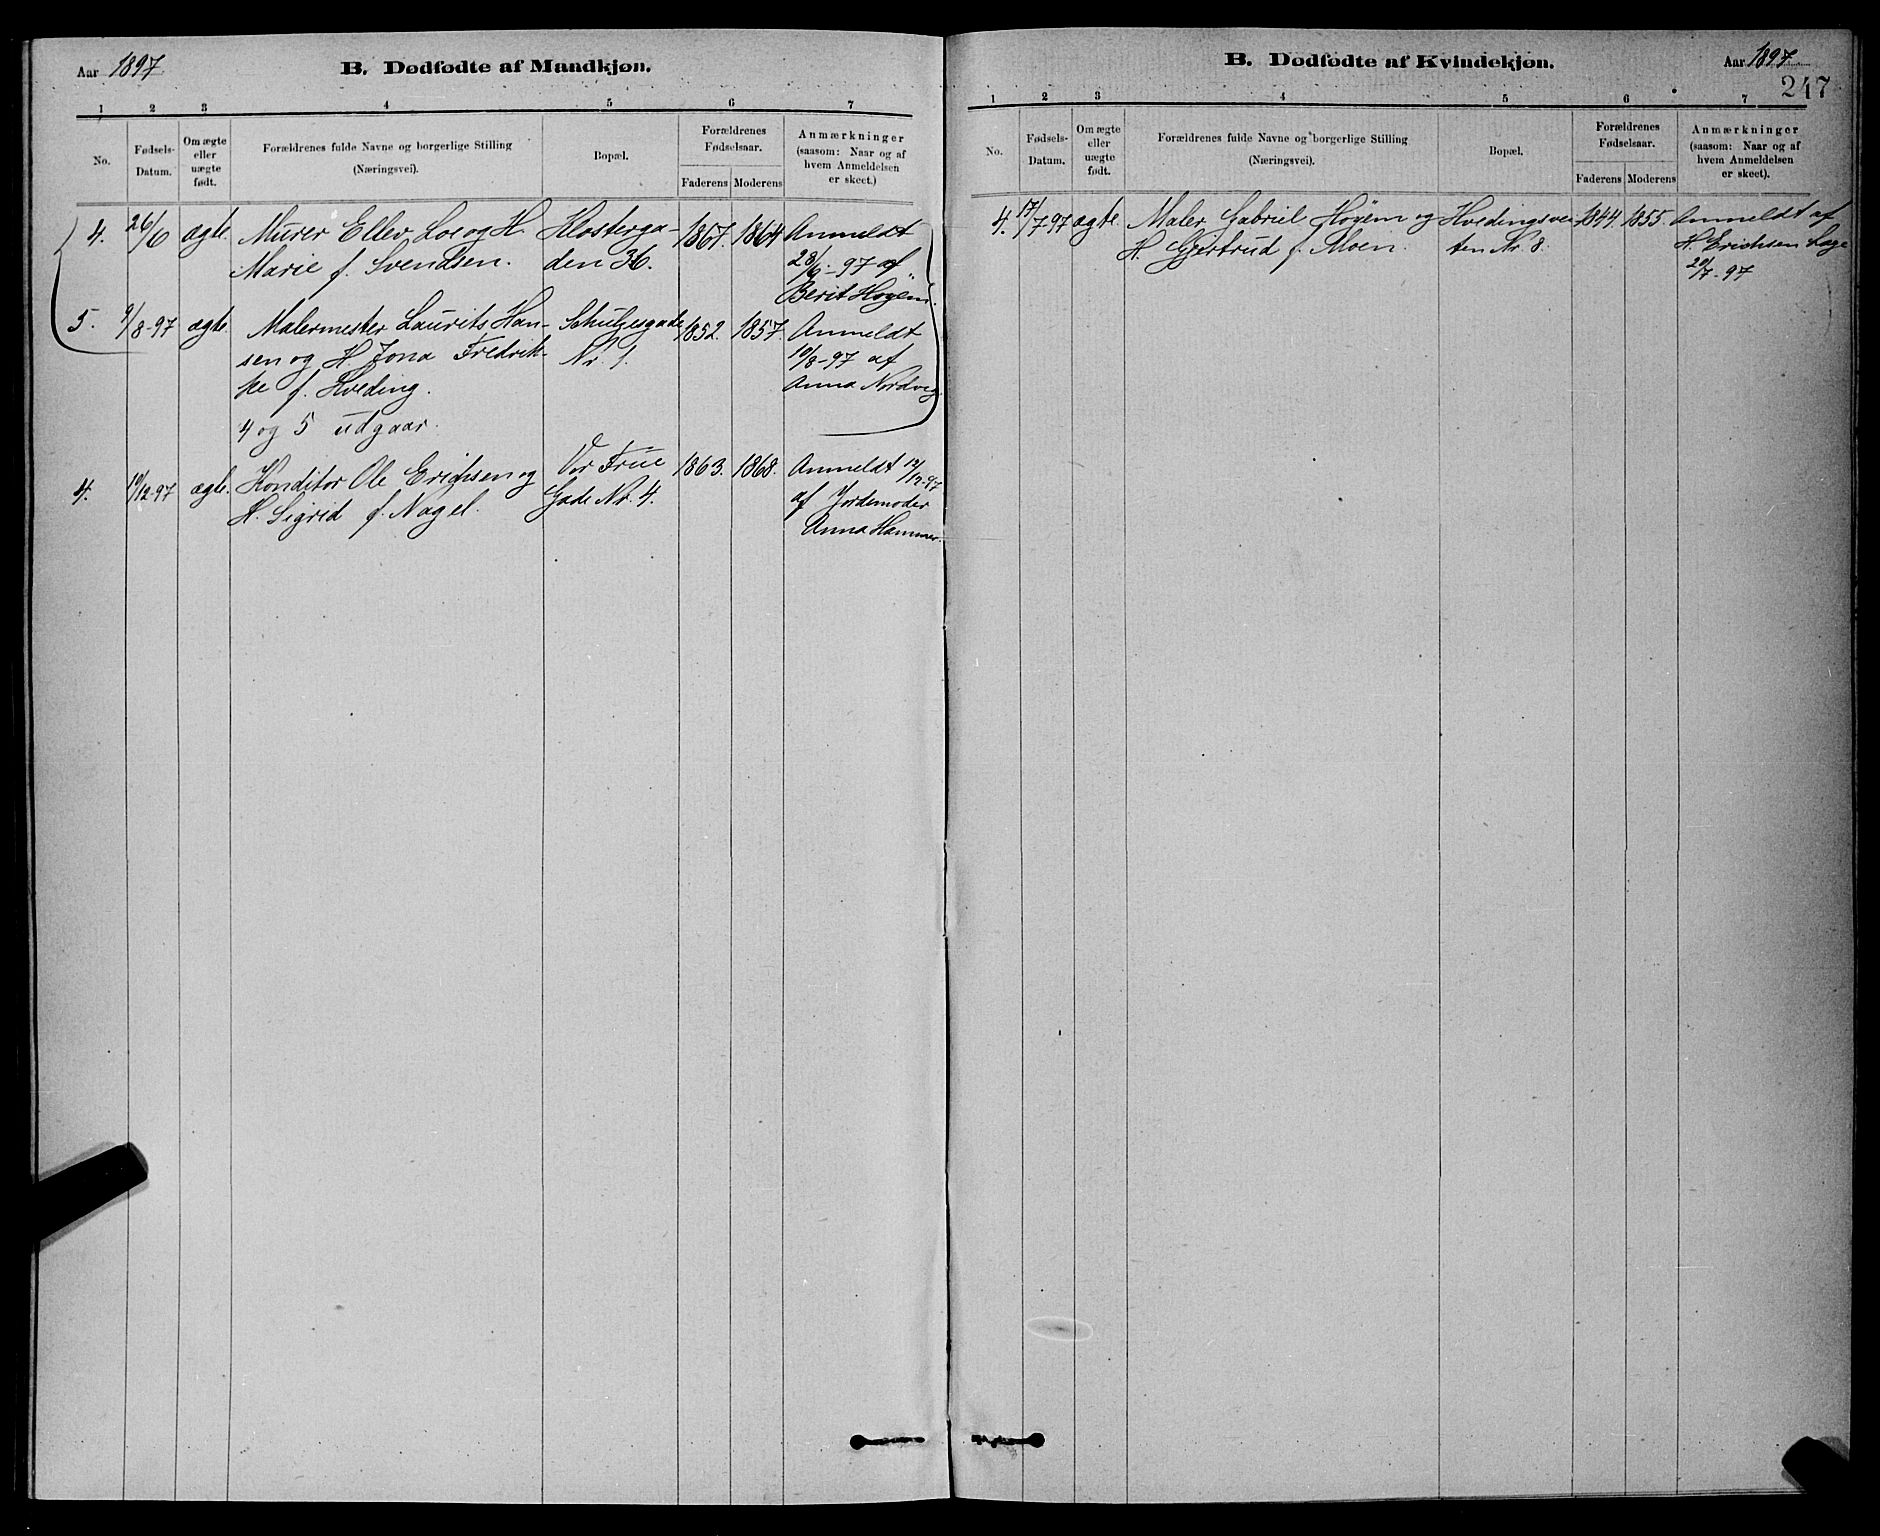 Aar 1897
B. Dødfødte af Mandkjøn.
1 2 3 4 5 6 7
No.
Fødsels-
Datum.
Om ægte
eller
uægte
født.
Forældrenes fulde Navne og borgerlige Stilling
(Næringsvei).
Bopæl.
Forældrenes
Fødselsaar.
Faderens Moderens
Anmærkninger
(saasom: Naar og af
hvem Anmeldelsen
er skeet.)
4. 26/6 ægte. Murer Ellev Loe og H. Klosterga- 1867. 1864 Anmeldt
Marie f. Svendsen. den 36. 28/6-97 af
Berit Hogem.
5. 9/8-97 ægte. Malermester Laurits Han- Schulzesgade 1852. 1857. Anmeldt
sen og H. Jona Fredrik- Nr. 1. 10/8-97 af
ke f. Hveding. Anna Nordvig
4 og 5 udgaar.
4. 10/12-97 ægte. Konditor Ole Erichsen og Vor Frue 1863. 1868. Anmeldt 12/12-97
H. Sigrid f. Nagel. Gade Nr. 4. af Jordemoder
Anna Hammer.
B. Dødfødte af Kvindekjøn.
Aar 1897
247
1 2 3 4 5 6 7
No.
Fødsels-
Datum.
Om ægte
eller
uægte
født.
Forældrenes fulde Navne og borgerlige Stilling
(Næringsvei).
Bopæl.
Forældrenes
Fødselsaar.
Faderens Moderens
Anmærkninger
(saasom: Naar og af
hvem Anmeldelsen
er skeet).
4. 17/7-97 ægte. Maler Gabriel Høyem og Hvedingsvei 1844. 1855. Anmeldt af
H. Gjertrud f. Moen. ten Nr. 8. H. Erichsen Læge
20/7-97